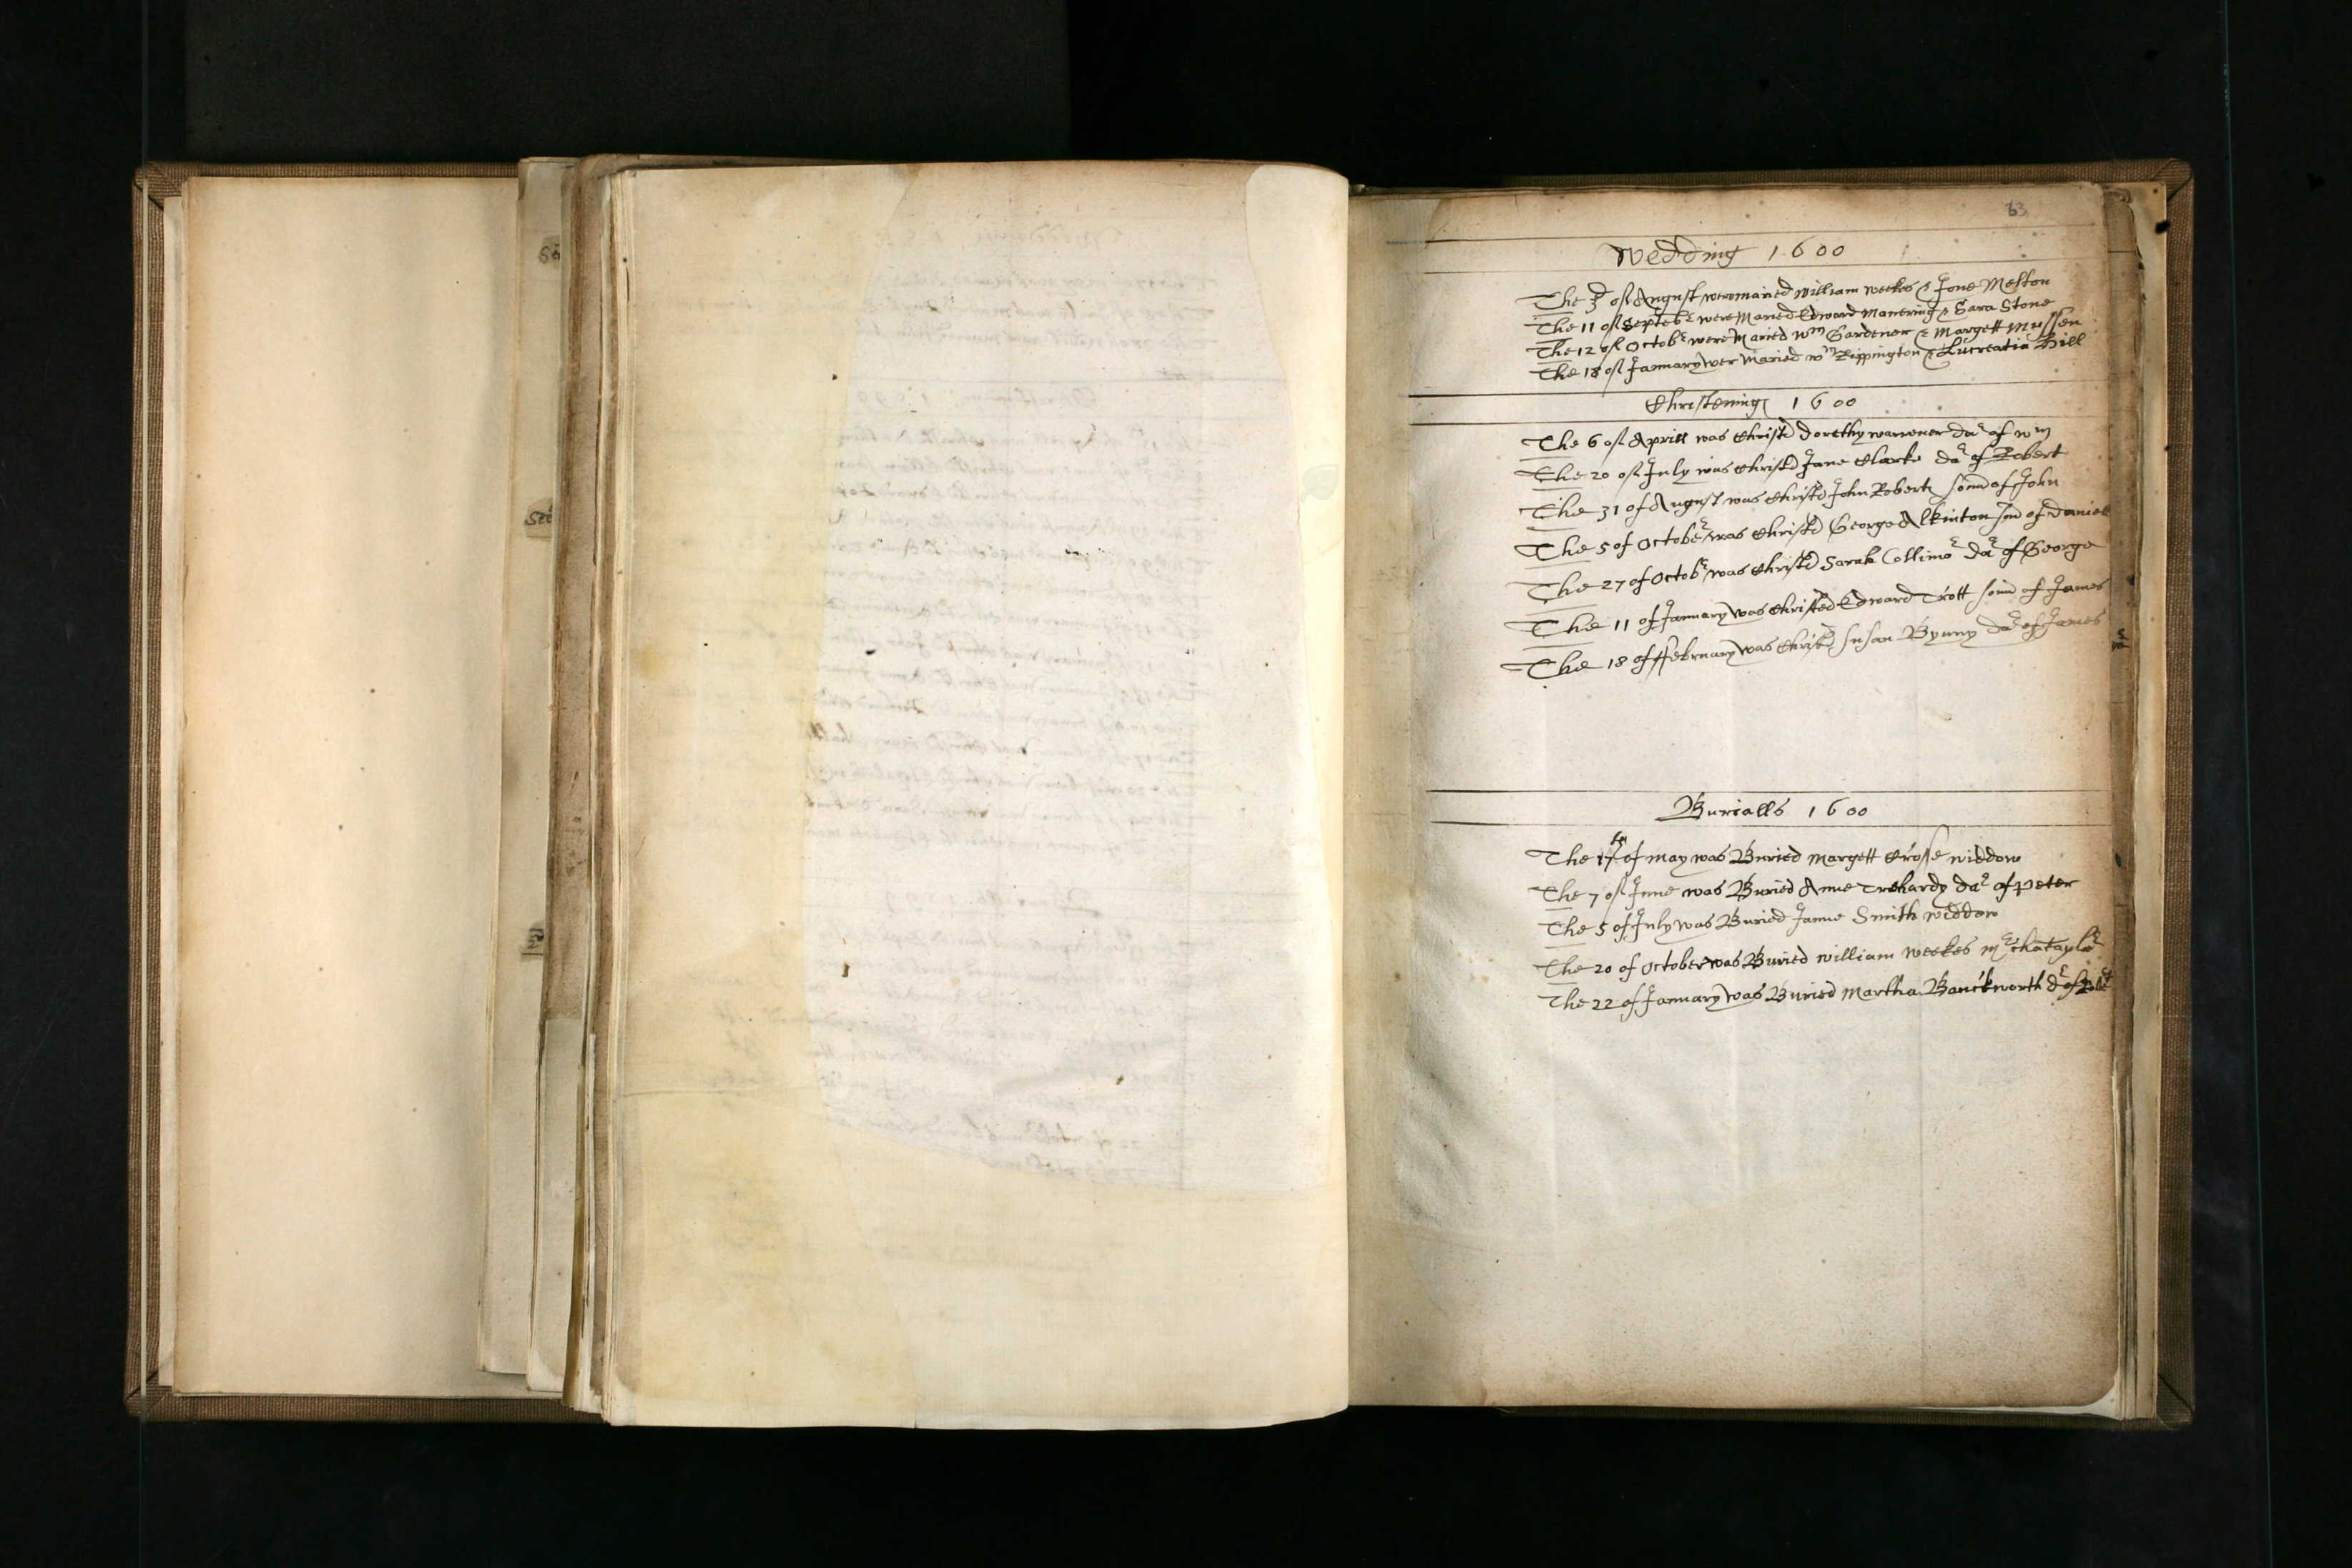 63
Wedding 1600
The 3d of August were maried William Weekes & Jone Melton
The 11 of Septebr were Maried Edward Manering & Sara Stone
The 12 of Octobr were Maried Wm Gardener & Margett Mussen
The 18 of January wer Maried Wm Rippington & Lucreatia Hill
Christening 1600
The 6 of Aprill was Christd Dorethy Warrener dar of Wm
The 20 of July was Christd Jane Clarke dar of Robert
The 31 of August was Christd John Roberts sonn of John
The 5 of Octobr was Christd George Alkinton son of Daniell
The 27 of Octobr was Christd Sarah Collimor dar of George
The 11 of January was Christed Edward Trott sonn of James
The 18 of ffebruary was Christd Susan Bynny dar of James
Burialls 1600
The 17th of May was Buried Margett Crosse widdow
The 7 of June was Buried Anne Trehardy dar of Peter
The 5 of July was Buried Janne Smith widdow
The 20 of October was Buried William Weekes
The 22 of January was Buried Martha Banckworth dr of Robt